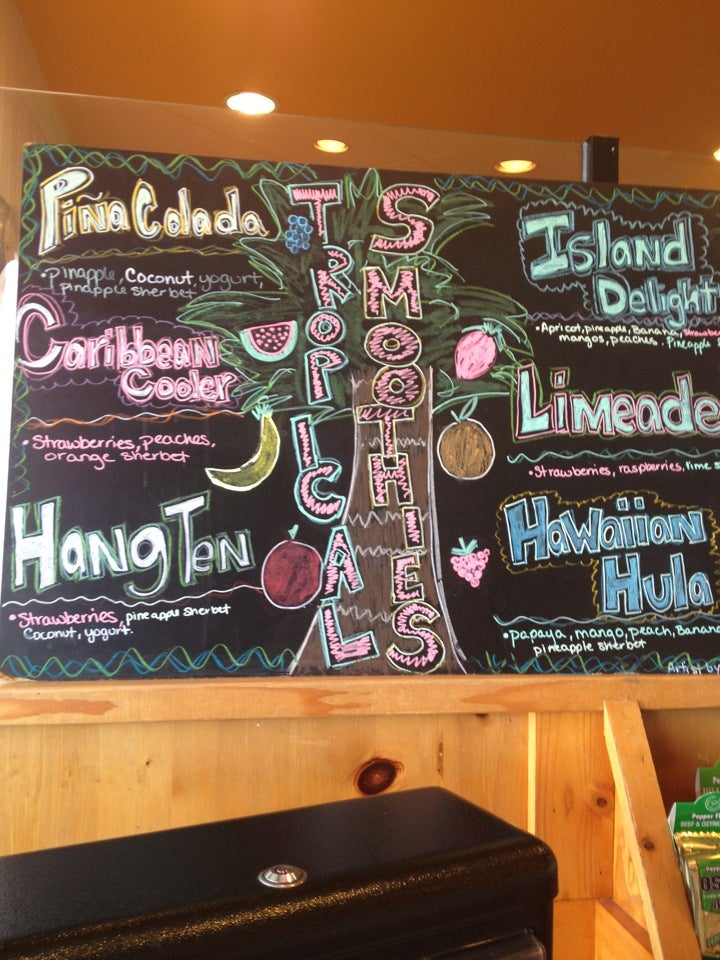 TROPICAL
SMOOTHIES
Piña Colada
• pinapple, Coconut, yogurt,
pinapple sherbet
Caribbean
Cooler
• Strawberries, peaches,
orange sherbet
Hang Ten
• Strawberries, pineapple sherbet
Coconut, yogurt.
Island
Delight
• Apricot, pineapple, Banana,
mangos, peaches. Pineapple
Limeade
• Strawberries, raspberries, lime
Hawaiian
Hula
• papaya, mango, peach, Banana
pineapple sherbet
Artist by